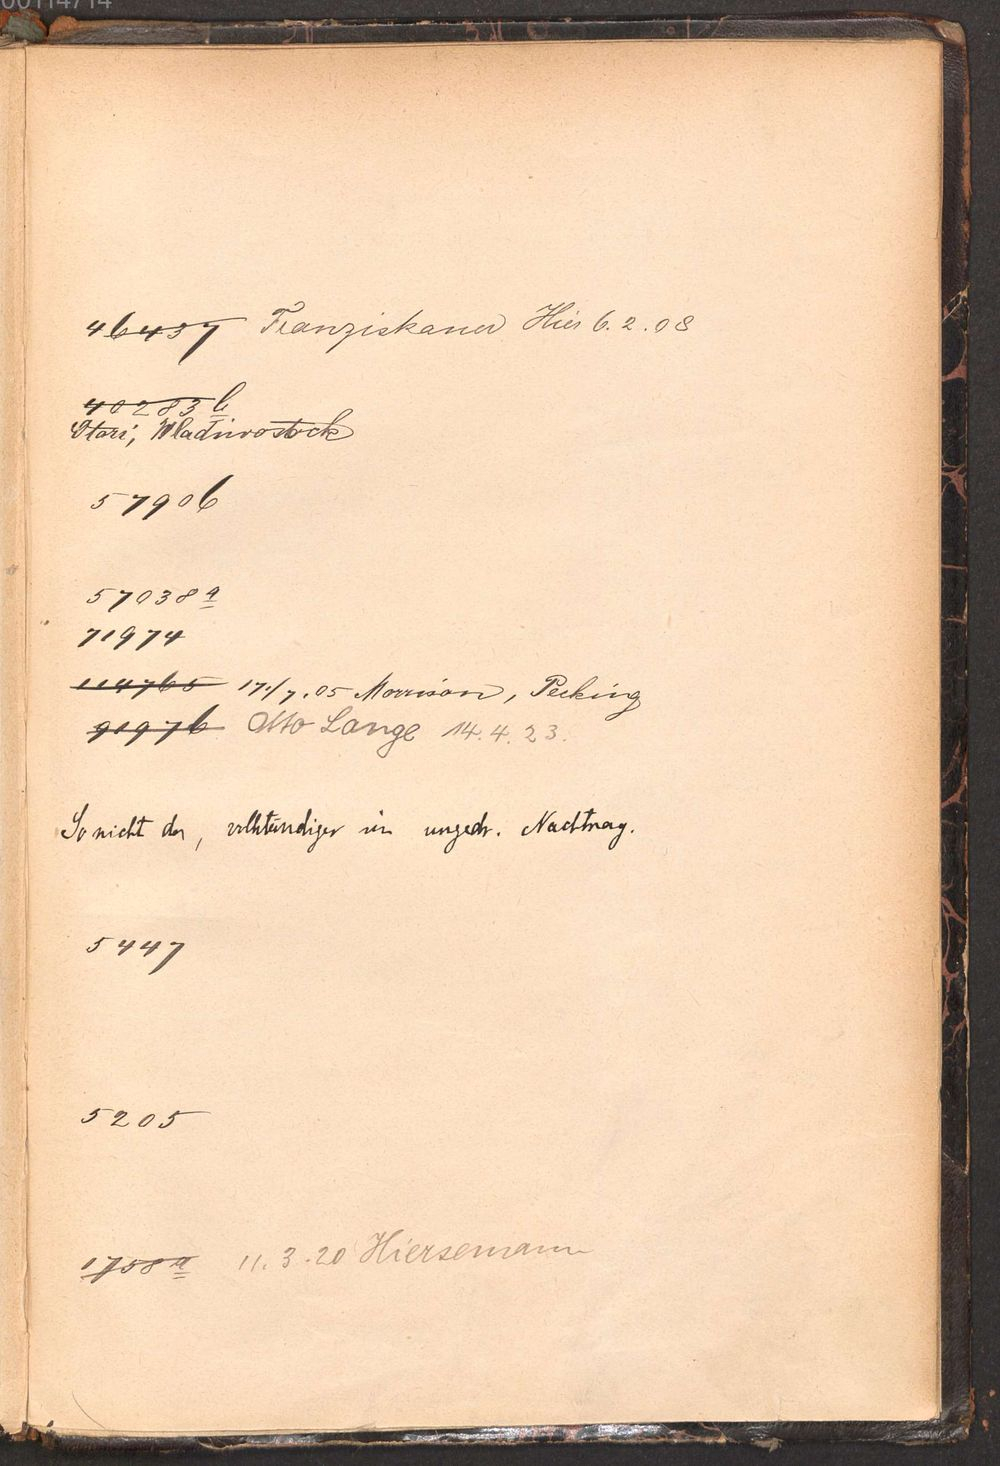 00114714
46437 Franziskaner Hier 6.2.08
40283b
Stari, Wladiwostock
57906
57038a
71974
114765 17./7.05 Morrison, Pecking
91976 Otto Lange 14.4.23.
So nicht da, vollständiger im ungedr. Nachtrag.
5447
5205
1758a 11.3.20 Hiersemann